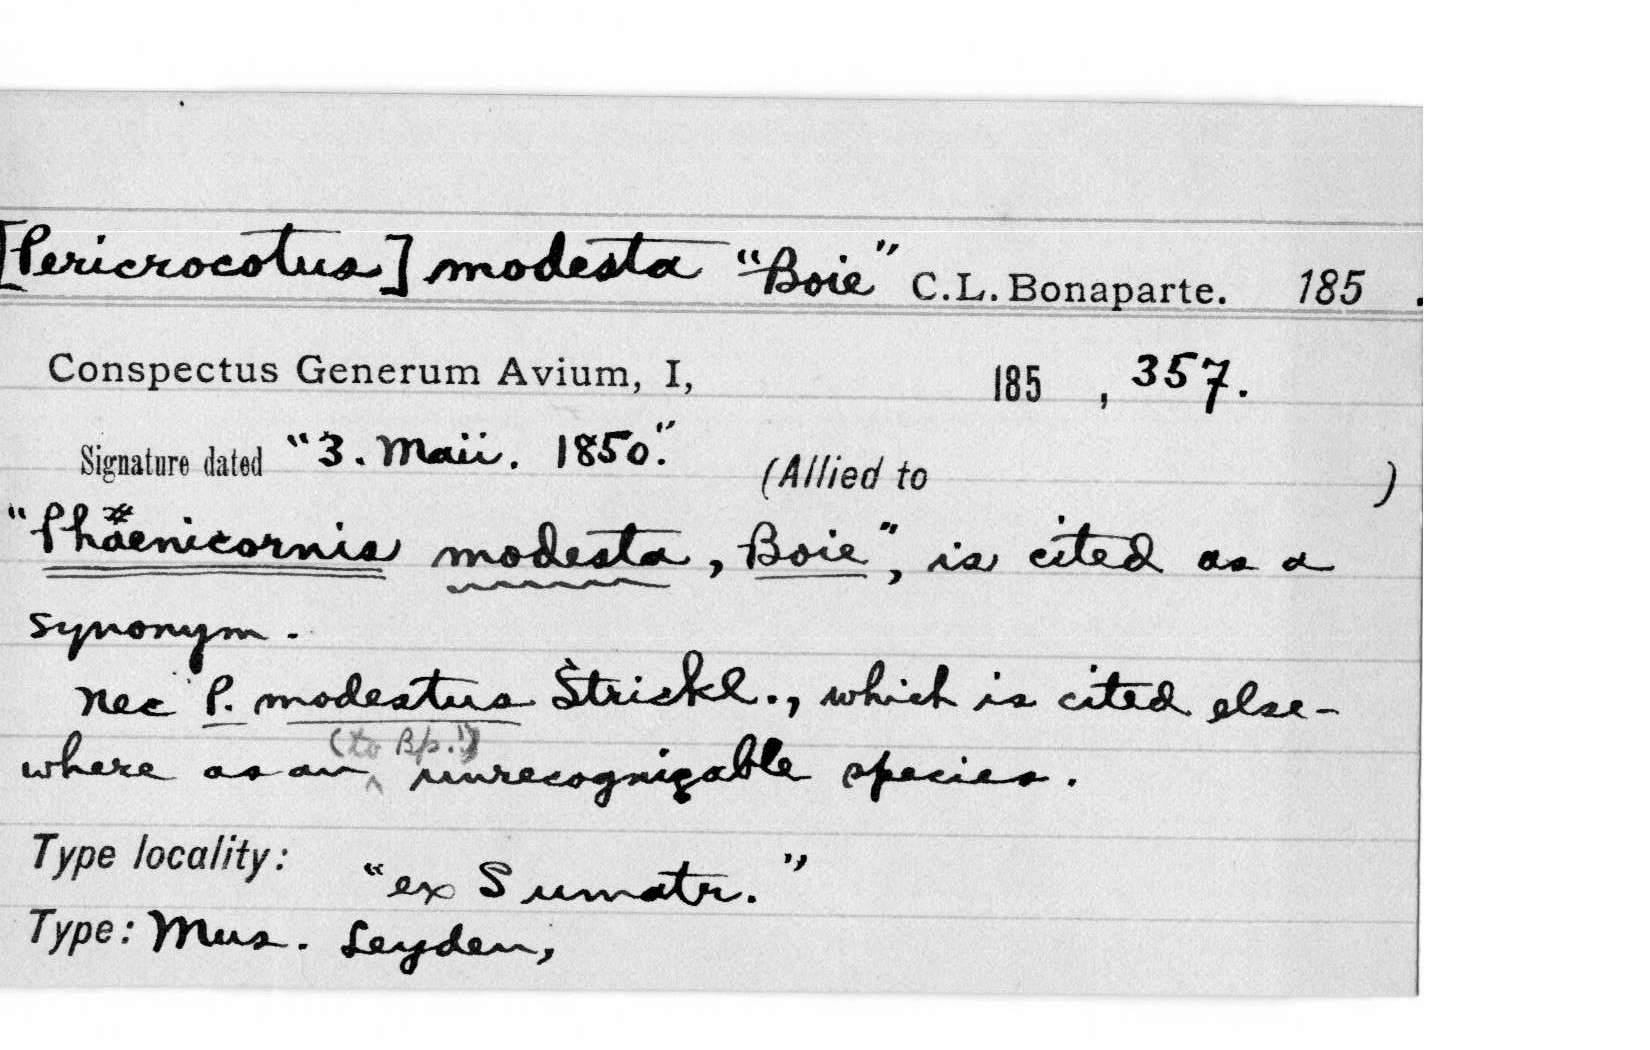 [Pericrocotus] modesta "Boie" C.L. Bonaparte. 185 .
Conspectus Generum Avium, I, 185 , 357.
Signature dated "3. Maii. 1850." (Allied to )
"Phaenicornis modesta, Boie", is cited as a
synonym.
nec P. modestus Strickl., which is cited else-
(to Bp.!)
where as an ^ unrecognizable species.
Type locality: "ex Sumatr."
Type: Mus. Leyden,